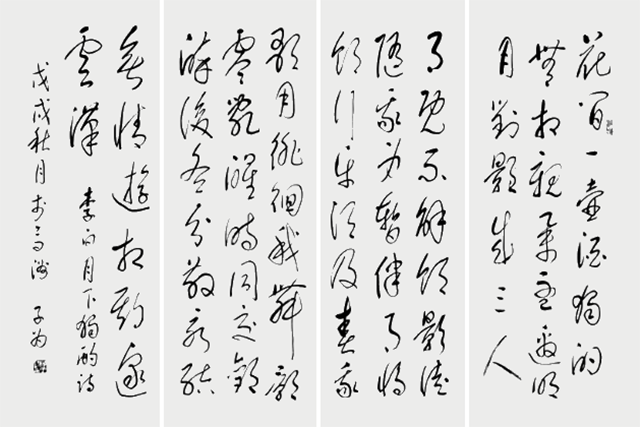 花間一壺酒獨酌
無相親舉杯邀明
月對影成三人
月既不解飲影徒
隨我身暫伴月將
行樂須及春我
歌月徘徊我舞影
零亂醒時同交歡
醉後各分散永結
無情遊相期邈
雲漢
李白月下獨酌詩
戊戌秋月於上海 子为